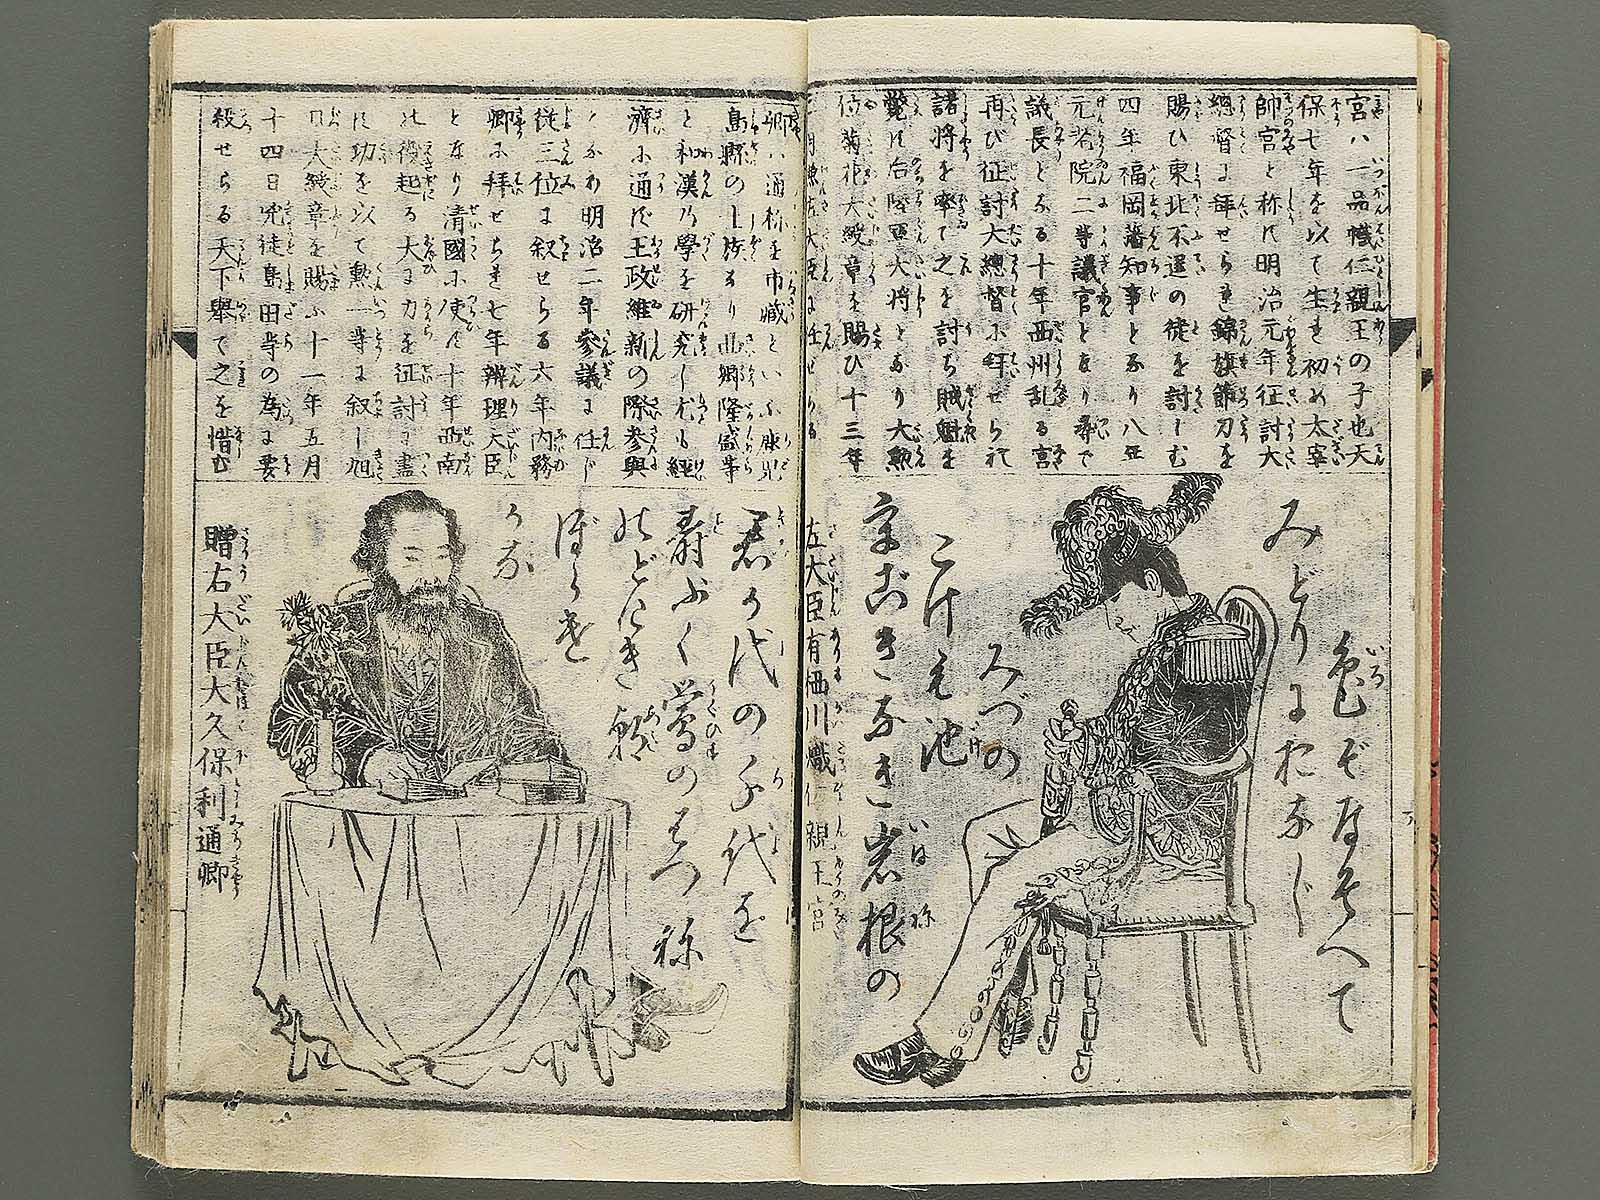 宮ハ一品幟仁親王の子也天
保七年を以て生る初め太宰
帥宮と称す明治元年征討大
總督に拜せられ錦旗節刀を
賜ひ東北不逞の徒を討しむ
四年福岡藩知事となり八年
元老院二等議官となり尋で
議長となる十年西州乱る宮
再び征討大總督に拜せられ
諸將を率て之を討ち賊魁を
斃す后陸軍大将となり大勲
位菊花大綬章を賜ひ十三年
左大臣に任せらる
色ぞひそへて
みどりにおなじ
みづの
こけも池
岩根の
左大臣有栖川熾仁親王宮
卿ハ通称を市藏といふ鹿児
島縣の士族なり西郷隆盛等
と和漢の學を研究し尤も經
濟に通ず王政維新の際参與
となり明治二年参議に任じ
従三位に叙せらる六年内務
卿に拜せられ七年辨理大臣
となり清國に使す十年西南
の役起る大に力を征討に盡
す功を以て勲一等に叙し旭
日大綬章を賜ふ十一年五月
十四日兇徒島田等の為に要
殺せらる天下舉て之を惜む
君が代の千代を
壽ふく鶯のはつ祢
のどけき朝
ぼらけ
かな
贈右大臣大久保利通卿